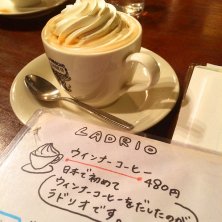 LADRIO
ウインナーコーヒー
480円
日本で初めて
ウィンナーコーヒーをだしたのが
ラドリオです。